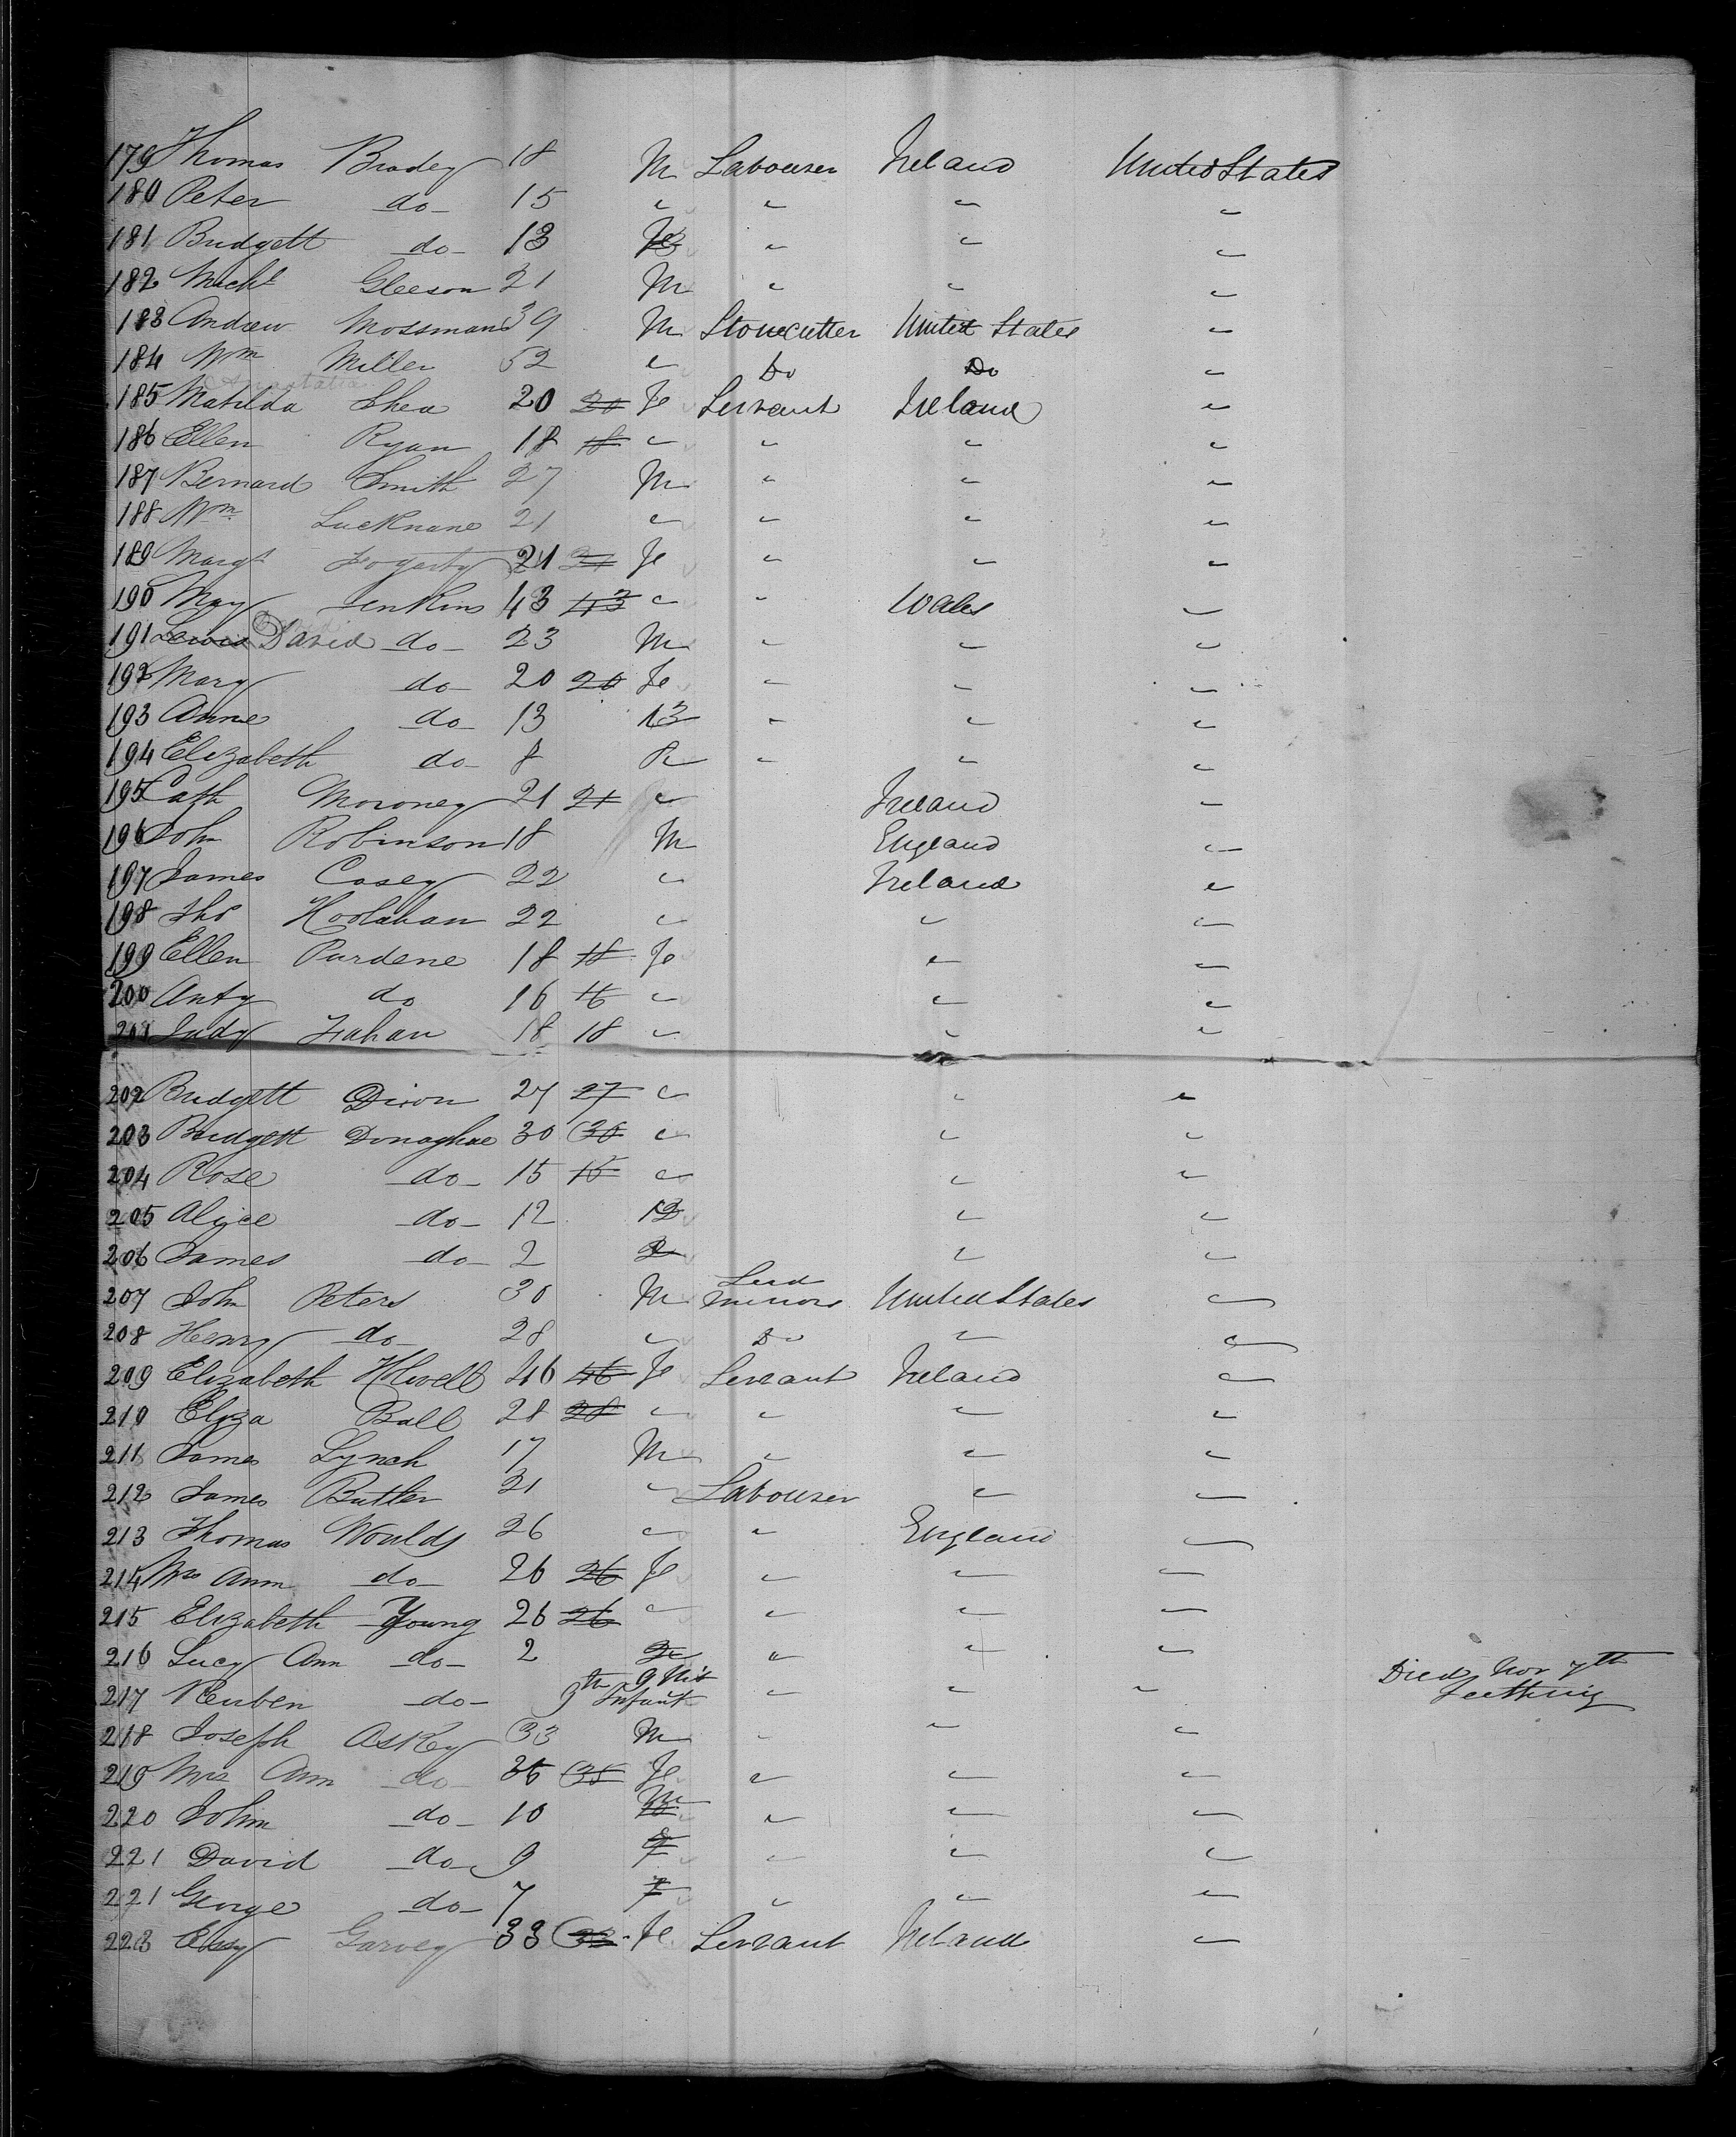 179 Thomas Bradey 18 M Labourer Ireland United States
180 Peter do 15 " " " "
181 Bridgett do 13 Fe " " "
182 Michl Gleeson 21 M " " "
183 Andrew Mossman 39 M Stonecutter United States "
184 Wm Miller 52 " Do Do "
Anastatia
185 Matilda Shea 20 20 Fe Servant Ireland "
186 Ellen Ryan 18 18 " " " "
187 Bernard Smith 27 M " " "
188 Wm Lucknane 21 " " " "
189 Margt Fogarty 21 21 Fe " " "
190 May Jenkins 43 43 " " Wales "
191 Lewis David do 23 M " " "
192 Mary do 20 20 Fe " " "
193 Anne do 13 13 " " "
194 Elizabeth do 8 " " "
195 Cath Moroney 21 21 " Ireland "
196 John Robinson 18 M England "
197 James Casey 22 " Ireland "
198 Thos Hoolahan 22 " " "
199 Ellen Purdene 18 18 Fe " "
200 Anty do 16 16 " " "
201 Judy Fahan 18 18 " " "
202 Bridgett Dixon 27 27 " " "
203 Bridgett Donaghue 30 30 " " "
204 Rose do 15 15 " " "
205 Alice do 12 12 " "
206 James do 2 2 " "
207 John Peters 30 M Lead Miners United States "
208 Henry do 28 " Do " "
209 Elizabeth 46 46 Fe Servant Ireland "
210 Eliza Ball 28 28 " " " "
211 James Lynch 17 M " " "
212 James Butler 21 " Labourer " "
213 Thomas Woulds 26 " " England "
214 Mrs Ann do 26 26 Fe " " "
215 Elizabeth Young 26 26 " " " "
216 Lucy Ann do 2 " " "
217 Reuben do 9 m Infant " " " Died Nov 7th Teething
218 Joseph Askey 33 M " " "
219 Mrs Ann do 35 35 Fe " " "
220 John do 10 M 10 " " "
221 David do 9 9 " " "
221 George do 7 7 " " "
223 Garvey 33 33 Fe Servant Ireland "